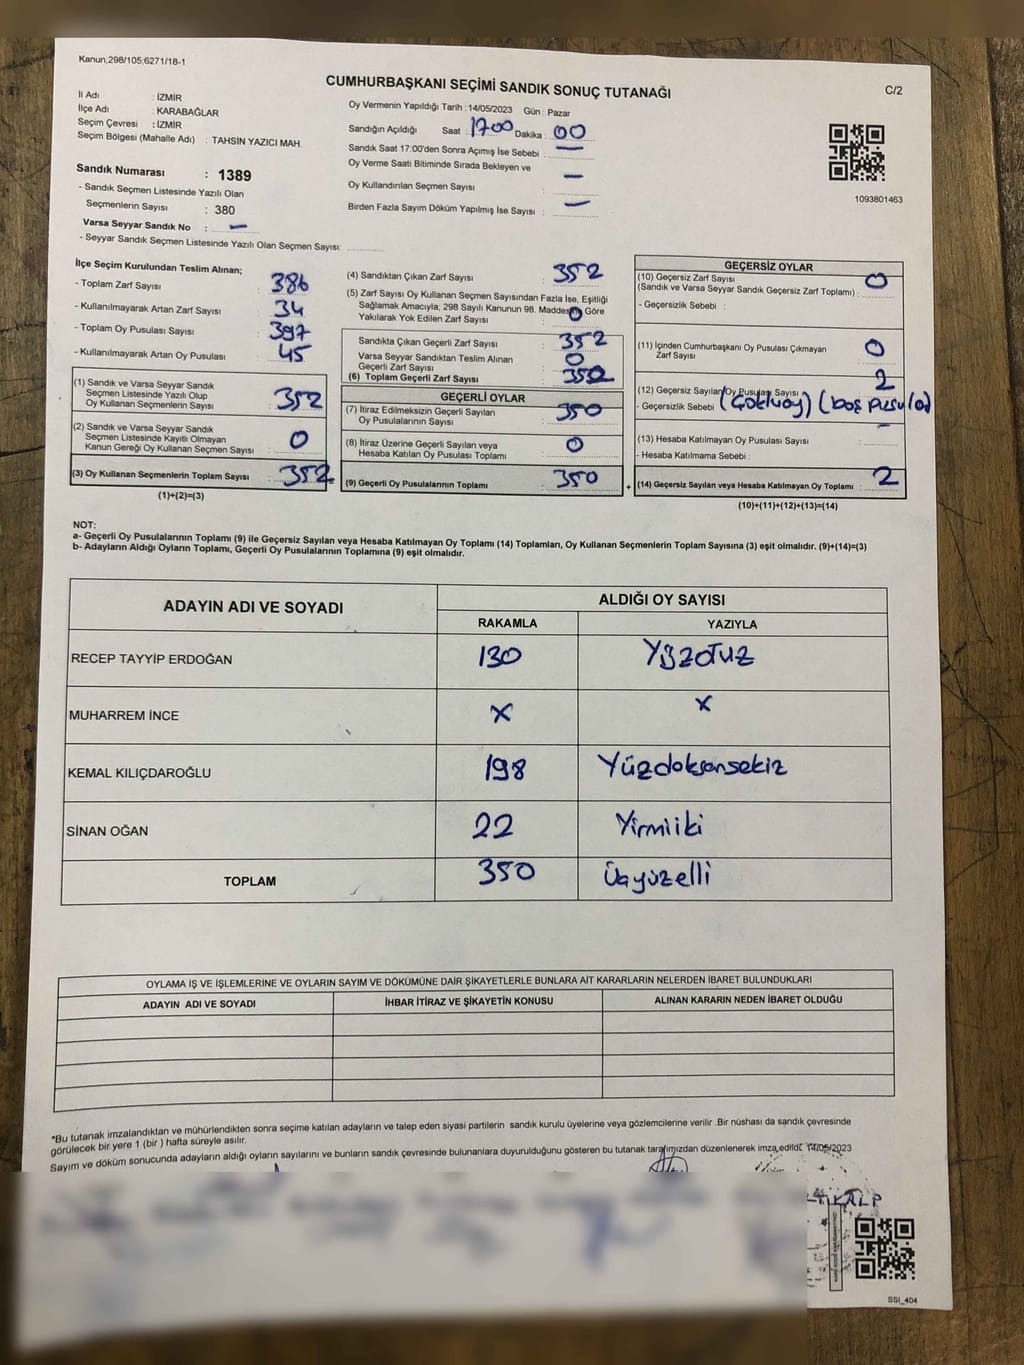 Kanun;298/105;6271/18-1
CUMHURBAŞKANI SEÇİMİ SANDIK SONUÇ TUTANAĞI
C/2
İl Adı : İZMİR
İlçe Adı : KARABAĞLAR
Seçim Çevresi : İZMİR
Seçim Bölgesi (Mahalle Adı) : TAHSİN YAZICI MAH.
Oy Vermenin Yapıldığı Tarih : 14/05/2023 Gün : Pazar
Sandığın Açıldığı Saat : 1700 Dakika : 00
Sandık Saat 17:00'den Sonra Açımış İse Sebebi : —
Oy Verme Saati Bitiminde Sırada Bekleyen ve
Oy Kullandırılan Seçmen Sayısı : —
Birden Fazla Sayım Döküm Yapılmış İse Sayısı : —
1093801463
Sandık Numarası : 1389
- Sandık Seçmen Listesinde Yazılı Olan
Seçmenlerin Sayısı : 380
Varsa Seyyar Sandık No : —
- Seyyar Sandık Seçmen Listesinde Yazılı Olan Seçmen Sayısı:
İlçe Seçim Kurulundan Teslim Alınan;
- Toplam Zarf Sayısı : 386
- Kullanılmayarak Artan Zarf Sayısı : 34
- Toplam Oy Pusulası Sayısı : 397
- Kullanılmayarak Artan Oy Pusulası : 45
(1) Sandık ve Varsa Seyyar Sandık
Seçmen Listesinde Yazılı Olup
Oy Kullanan Seçmenlerin Sayısı : 352
(2) Sandık ve Varsa Seyyar Sandık
Seçmen Listesinde Kayıtlı Olmayan
Kanun Gereği Oy Kullanan Seçmen Sayısı : 0
(3) Oy Kullanan Seçmenlerin Toplam Sayısı : 352
(1)+(2)=(3)
(4) Sandıktan Çıkan Zarf Sayısı : 352
(5) Zarf Sayısı Oy Kullanan Seçmen Sayısından Fazla İse, Eşitliği
Sağlamak Amacıyla, 298 Sayılı Kanunun 98. Maddesine Göre
Yakılarak Yok Edilen Zarf Sayısı : 0
Sandıkta Çıkan Geçerli Zarf Sayısı : 352
Varsa Seyyar Sandıktan Teslim Alınan
Geçerli Zarf Sayısı : 0
(6) Toplam Geçerli Zarf Sayısı : 352
GEÇERLİ OYLAR
(7) İtiraz Edilmeksizin Geçerli Sayılan
Oy Pusulalarının Sayısı : 350
(8) İtiraz Üzerine Geçerli Sayılan veya
Hesaba Katılan Oy Pusulası Toplamı : 0
(9) Geçerli Oy Pusulalarının Toplamı : 350
+
GEÇERSİZ OYLAR
(10) Geçersiz Zarf Sayısı
(Sandık ve Varsa Seyyar Sandık Geçersiz Zarf Toplamı) : 0
- Geçersizlik Sebebi :
(11) İçinden Cumhurbaşkanı Oy Pusulası Çıkmayan
Zarf Sayısı : 0
(12) Geçersiz Sayılan Oy Pusulası Sayısı : 2
- Geçersizlik Sebebi : (Çoklu oy) (boş pusula)
(13) Hesaba Katılmayan Oy Pusulası Sayısı : -
- Hesaba Katılmama Sebebi :
(14) Geçersiz Sayılan veya Hesaba Katılmayan Oy Toplamı : 2
(10)+(11)+(12)+(13)=(14)
NOT:
a- Geçerli Oy Pusulalarının Toplamı (9) ile Geçersiz Sayılan veya Hesaba Katılmayan Oy Toplamı (14) Toplamları, Oy Kullanan Seçmenlerin Toplam Sayısına (3) eşit olmalıdır. (9)+(14)=(3)
b- Adayların Aldığı Oyların Toplamı, Geçerli Oy Pusulalarının Toplamına (9) eşit olmalıdır.
ADAYIN ADI VE SOYADI
ALDIĞI OY SAYISI
RAKAMLA YAZIYLA
RECEP TAYYİP ERDOĞAN 130 Yüzotuz
MUHARREM İNCE x x
KEMAL KILIÇDAROĞLU 198 Yüzdoksansekiz
SİNAN OĞAN 22 Yirmiiki
TOPLAM 350 Üçyüzelli
OYLAMA İŞ VE İŞLEMLERİNE VE OYLARIN SAYIM VE DÖKÜMÜNE DAİR ŞİKAYETLERLE BUNLARA AİT KARARLARIN NELERDEN İBARET BULUNDUKLARI
ADAYIN ADI VE SOYADI İHBAR İTİRAZ VE ŞİKAYETİN KONUSU ALINAN KARARIN NEDEN İBARET OLDUĞU
*Bu tutanak imzalandıktan ve mühürlendikten sonra seçime katılan adayların ve talep eden siyasi partilerin sandık kurulu üyelerine veya gözlemcilerine verilir .Bir nüshası da sandık çevresinde
görülecek bir yere 1 (bir ) hafta süreyle asılır.
Sayım ve döküm sonucunda adayların aldığı oyların sayılarını ve bunların sandık çevresinde bulunanlara duyurulduğunu gösteren bu tutanak tarafımızdan düzenlenerek imza edildi. 14/05/2023
SSI_404